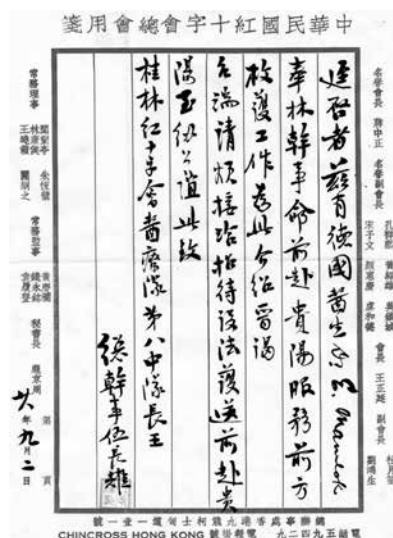 中華民國紅十字會總會用箋
名譽會長 蔣中正 名譽副會長 孔祥熙 宋子文 顏惠慶 吳鐵城 虞和德 會長 王正廷 副會長 杜月笙 劉鴻生
逕啓者茲有德國醫生
奉林幹事命前赴貴陽服務前方
救護工作為此介紹晉謁
台端請煩接洽招待設法護送前赴貴
陽至紉公誼此致
桂林紅十字會醫療隊第八中隊長王
總幹事伍長耀
常務理事 聞蘭亭 林康侯 王曉籟 朱恆璧 關炯之 常務監事 錢永銘 秘書長 龐京周 第 頁
年九月二日
總辦事處香港九龍柯士甸道一壹一號
電話五九四二九 電報掛號 CHINCROSS HONG KONG